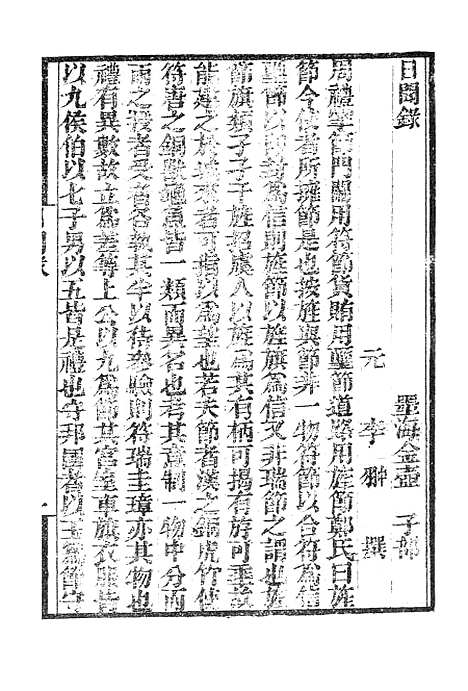 日聞錄　墨海金壺　子部
元　李翀　撰
周禮掌節門關用符節貨賄用璽節道路用旌節鄭氏曰旌
節今使者所擁節是也按旌與節非一物符節以合符爲信
璽節以印封爲信則旌節以旌旗爲信又非瑞節之謂也
節旗類孑孑干旌招虞人以旌爲其有柄可揭有斿可垂故
能建之於城來者可指以爲望也若夫節者漢之銅虎竹使
符唐之銅獸龜魚皆一類而異名也考其意制一物中分而
兩之授者受者各執其半以待參驗則符瑞圭璋亦其物也
禮有異數故立爲差等上公以九爲節其宮室車旗衣服皆
以九侯伯以七子男以五皆是禮也守邦國者以玉爲節守
日聞錄　一